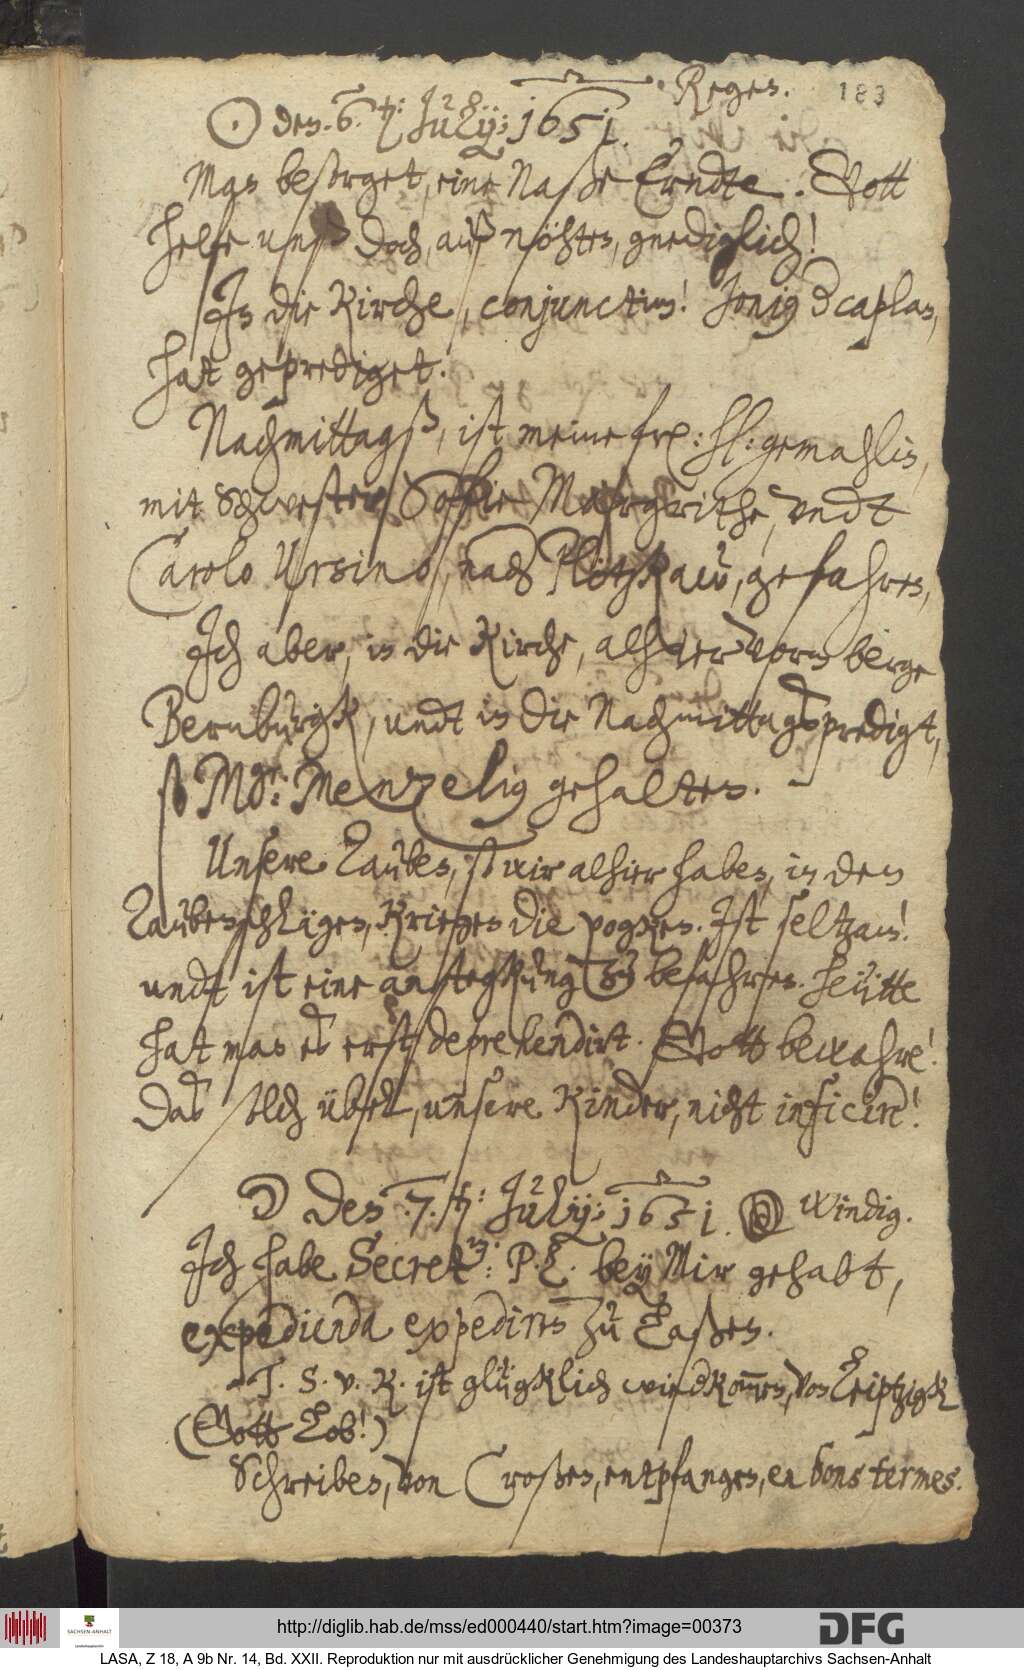 183
☉ den. 6. ten: Julij; 1651. Regen.
Man besorget, eine Naße Erndte. Gott
helfe unß doch, auß nöhten, gnediglich!
In die Kirche, conjunctim! Jonig d caplan,
hat geprediget.
Nachmittagß, ist meine frew: hl: gemahlin,
mit Schwester Soffie Margrithe, undt
Carolo Ursino, nach Plötzkaw, gefahren,
Ich aber, in die Kirche, alhier vorm berge
Bernburgk, undt in die Nachmittagspredigt,
so Mag: Menzelig gehalten.
Unsere Tauben, so wir alhier haben, in den
Taubenschlägen, kriegen die pogken. Ist seltzam!
undt ist eine anstegkung zu befahren. heütte
hat man es erst deprehendirt. Gott bewahre!
Das solch übel, unsere Kinder, nicht inficire!
☽ den 7. ten: Julij; 1651. windig.
Ich habe Secret: P. L. bey Mir gehabt,
expedienda expediren zu Laßen.
T. S. v. K. ist glügklich wiedkommen, von Leiptzigk
(Gott Lob!)
Schreiben, von Croßen, entpfangen, en bons termes.
http://diglib.hab.de/mss/ed000440/start.htm?image=00373
SACHSEN-ANHALT
DFG
LASA, Z 18, A 9b Nr. 14, Bd. XXII. Reproduktion nur mit ausdrücklicher Genehmigung des Landeshauptarchivs Sachsen-Anhalt